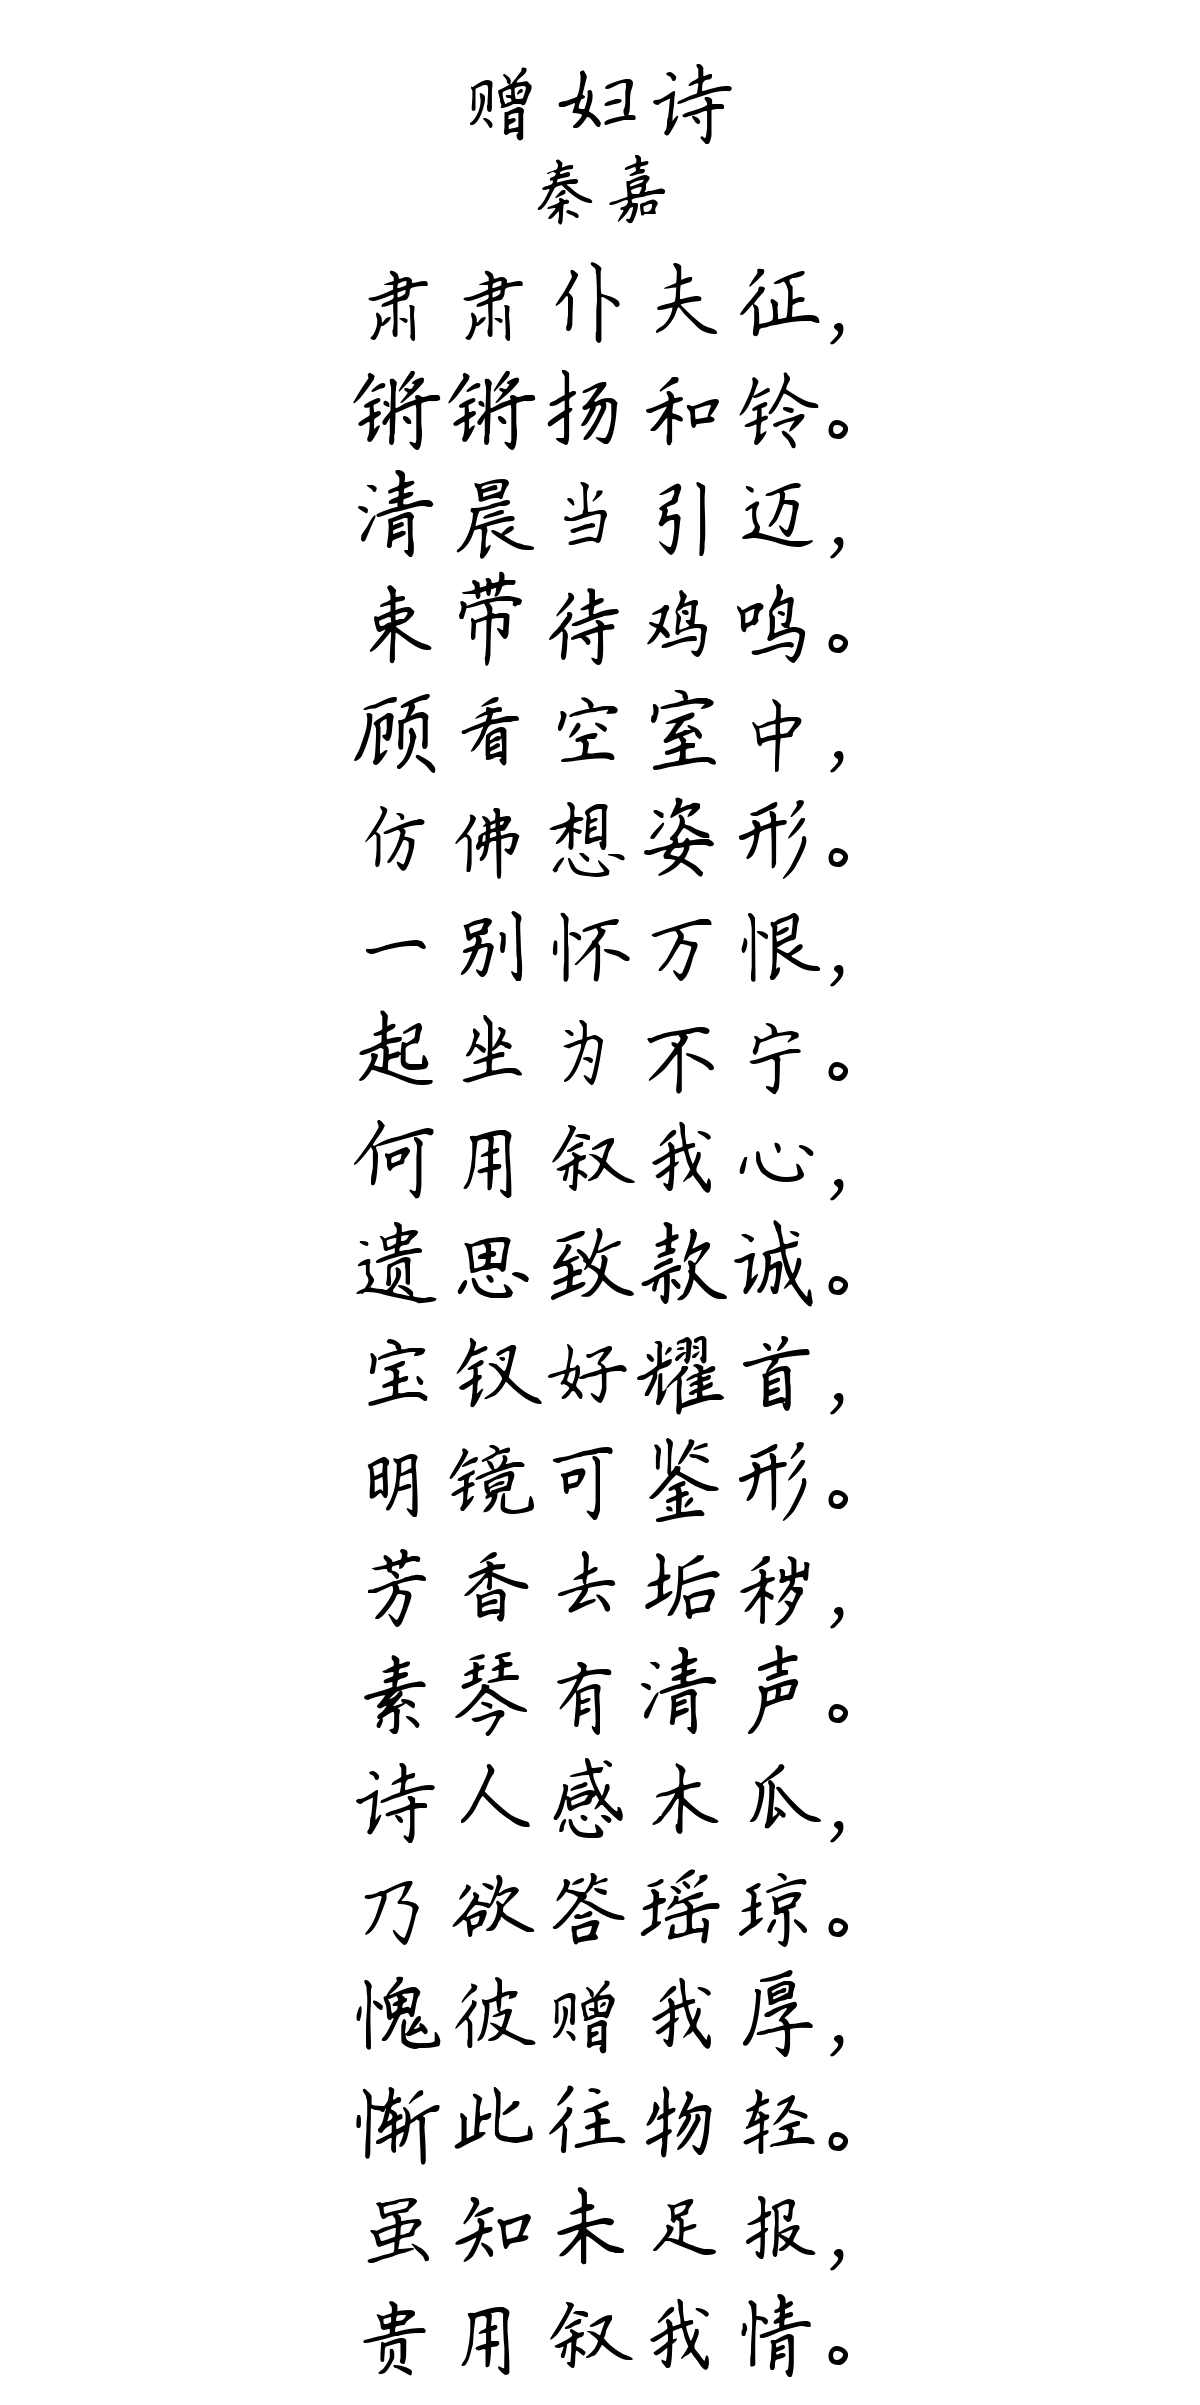 赠妇诗
秦嘉
肃肃仆夫征，
锵锵扬和铃。
清晨当引迈，
束带待鸡鸣。
顾看空室中，
仿佛想姿形。
一别怀万恨，
起坐为不宁。
何用叙我心，
遗思致款诚。
宝钗好耀首，
明镜可鉴形。
芳香去垢秽，
素琴有清声。
诗人感木瓜，
乃欲答瑶琼。
愧彼赠我厚，
惭此往物轻。
虽知未足报，
贵用叙我情。